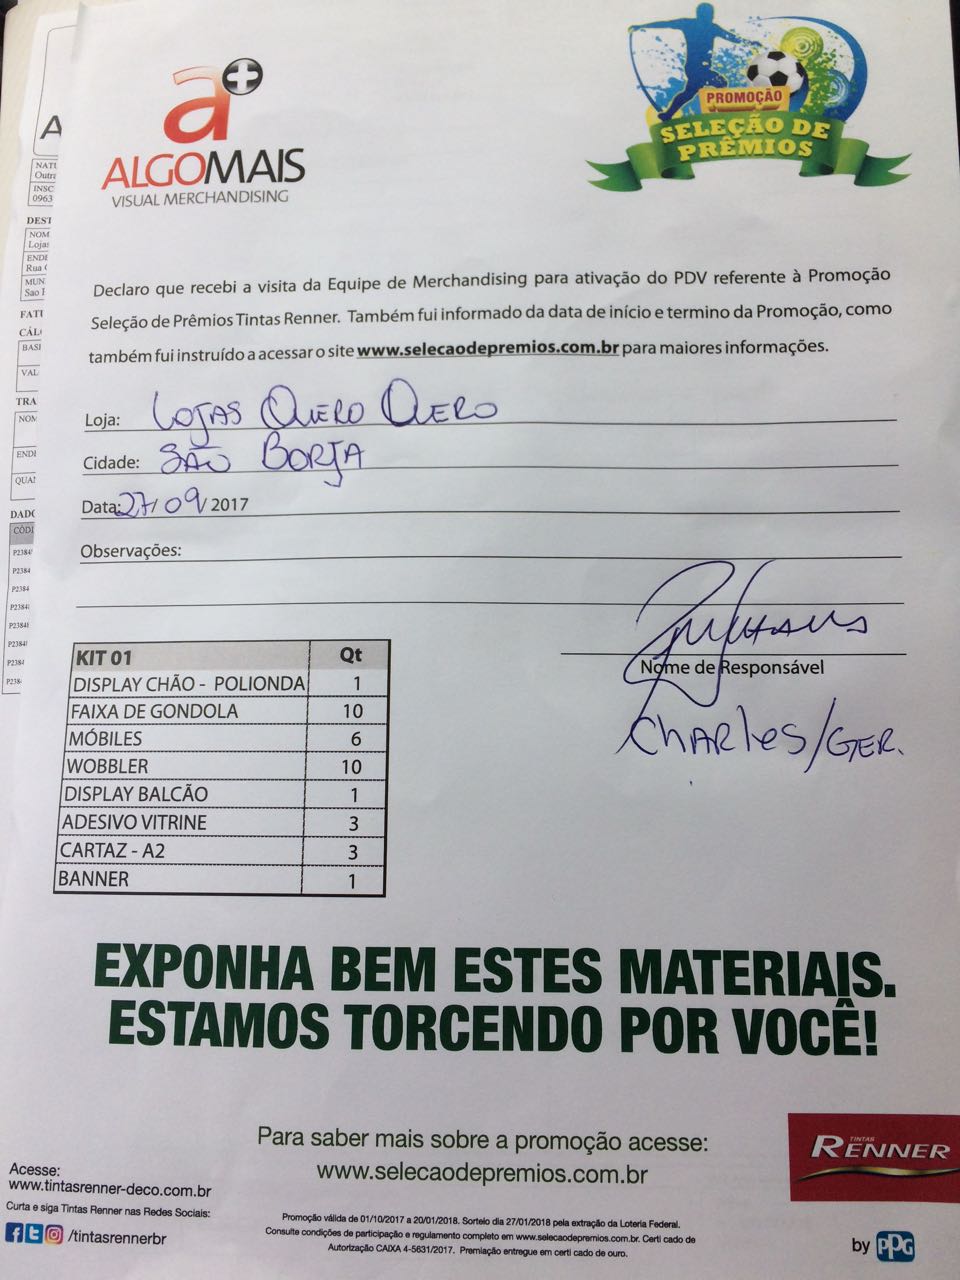 a+
ALGOMAIS
VISUAL MERCHANDISING
PROMOÇÃO
SELEÇÃO DE
PRÊMIOS
Declaro que recebi a visita da Equipe de Merchandising para ativação do PDV referente à Promoção
Seleção de Prêmios Tintas Renner. Também fui informado da data de início e termino da Promoção, como
também fui instruído a acessar o site www.selecaodepremios.com.br para maiores informações.
Loja: LOJAS QUERO QUERO
Cidade: SÃO BORJA
Data: 27/09/2017
Observações:
Nome de Responsável
CHARles/GER.
KIT 01 Qt
DISPLAY CHÃO - POLIONDA 1
FAIXA DE GONDOLA 10
MÓBILES 6
WOBBLER 10
DISPLAY BALCÃO 1
ADESIVO VITRINE 3
CARTAZ - A2 3
BANNER 1
EXPONHA BEM ESTES MATERIAIS.
ESTAMOS TORCENDO POR VOCÊ!
Para saber mais sobre a promoção acesse:
www.selecaodepremios.com.br
TINTAS
RENNER
Acesse:
www.tintasrenner-deco.com.br
Curta e siga Tintas Renner nas Redes Sociais:
/tintasrennerbr
Promoção válida de 01/10/2017 a 20/01/2018. Sorteio dia 27/01/2018 pela extração da Loteria Federal.
Consulte condições de participação e regulamento completo em www.selecaodepremios.com.br. Certi cado de
Autorização CAIXA 4-5631/2017. Premiação entregue em certi cado de ouro.
by PPG
A
NATU
Outra
INSC
0963
DEST
NOM
Lojas
ENDE
Rua
MUN
Sao
FATU
CÁL
BASI
VAL
TRA
NOM
ENDE
QUA
DADO
CÓDI
P2384
P2384
P2384
P2384
P2384
P2384
P2384
P238